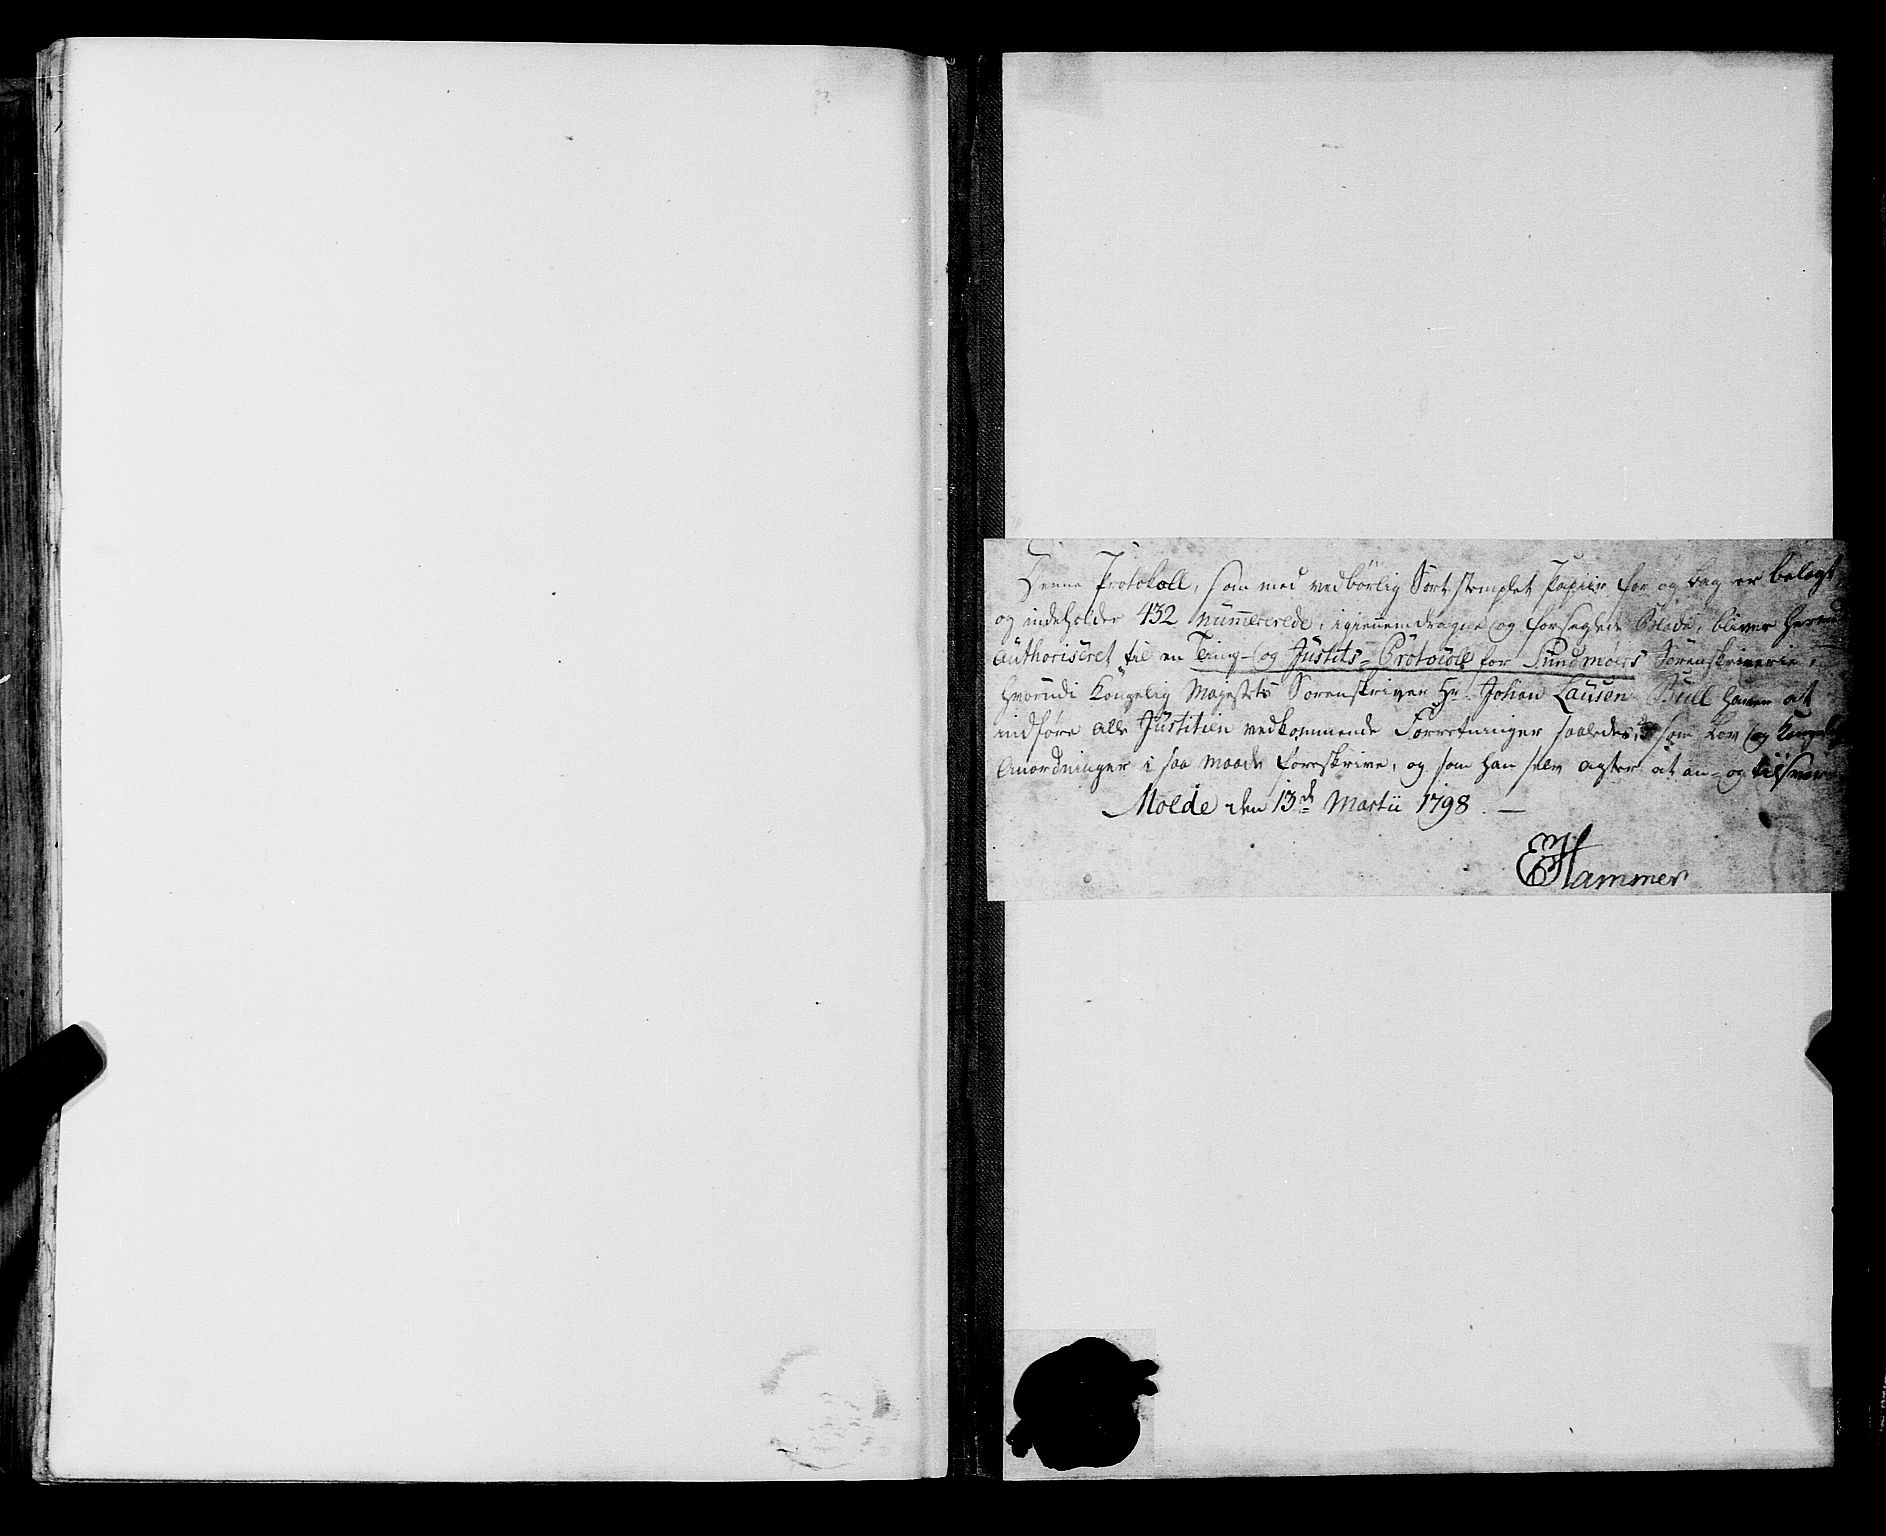 Denne Protokoll, som med vedbörlig Sort stemplet Papiir for og bag er belagt
og indeholder 432 nummererede, igiennemdragne og forseglede Blade, bliver herved
Authoriseret til en Ting- og Justits-Protocoll for Sundmøers Sorenskriverie,
hvorudi Kongelig Majestets Sorenskriver Hr. Johan Lausen Bull haver at
indføre alle Justitien vedkommende Forretninger saaledes, som Lov og
Anordninger i saa Maade foreskrive, og som han selv agter at an- og tilsvare
Molde den 13de Martii 1798. —
EHammer